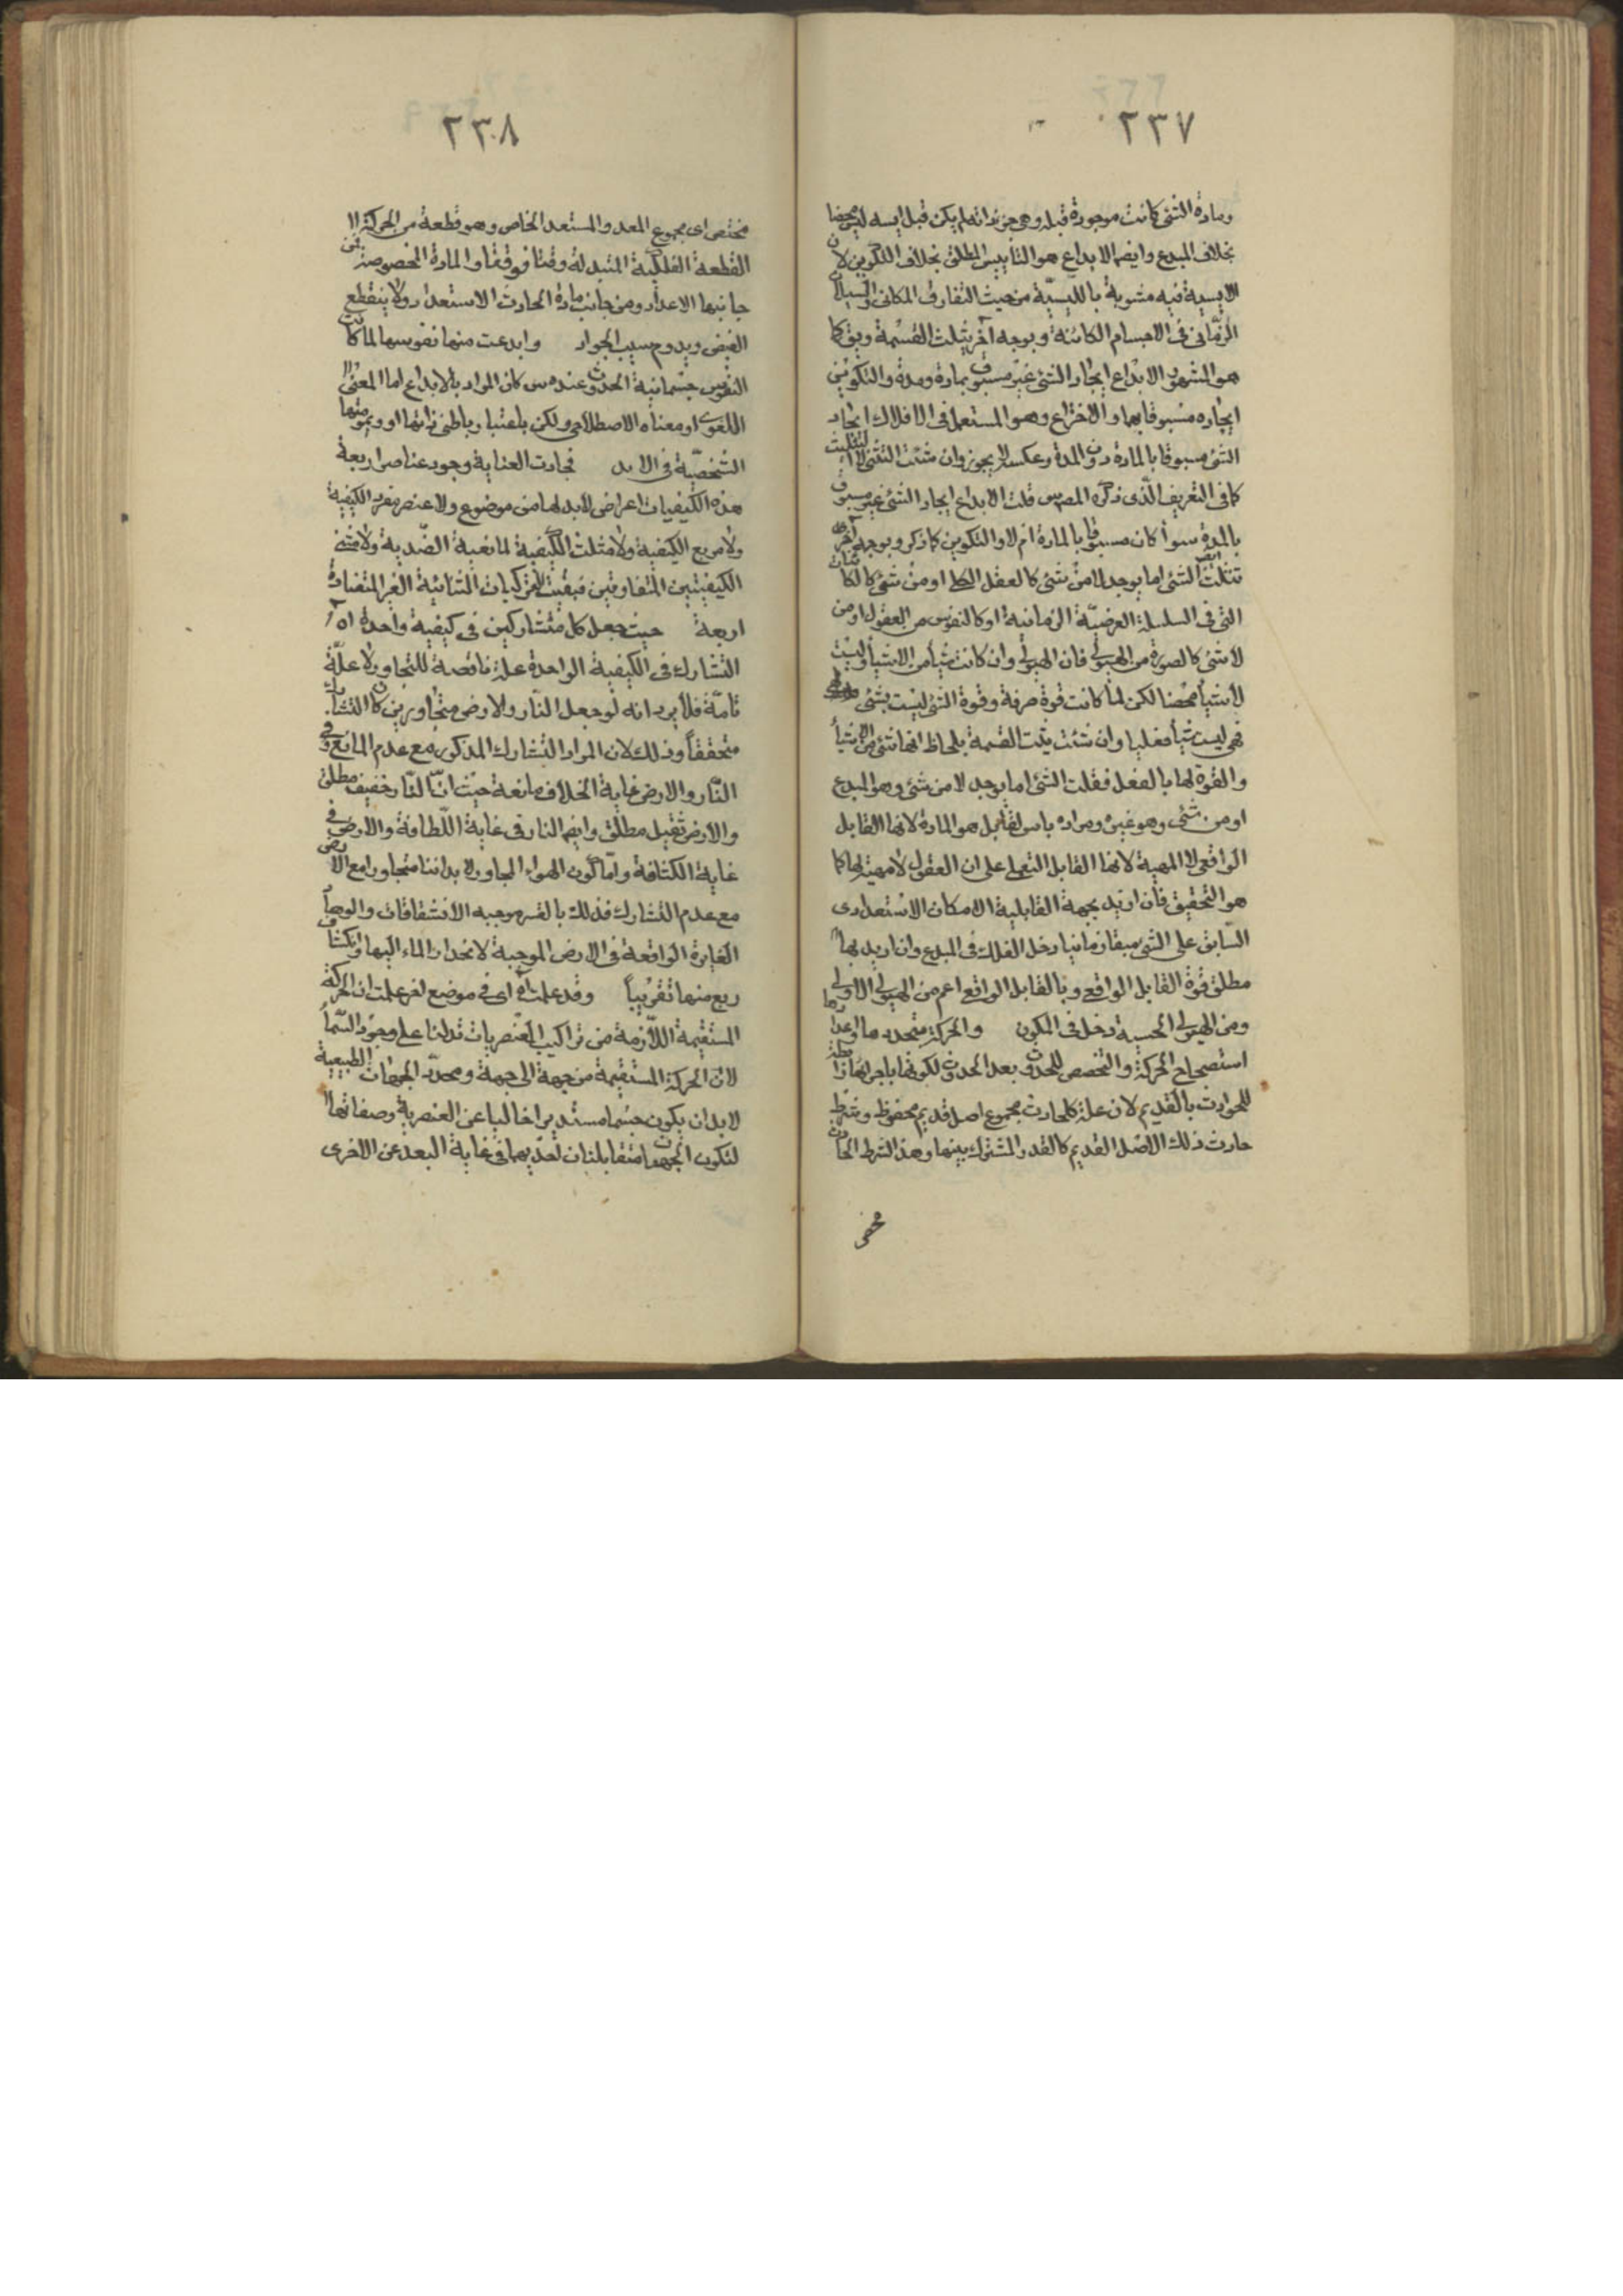 ٢٣٧
ومادة الشئ كانت موجودة قبله وهى جزء ذاته لم يكن قبل ايسه ليس محضا
بخلاف المبدع وايضا الابداع هو التأييس المطلق بخلاف التكوين لان
الايسية فيه مشوبة بالليسية من حيث التفارق المكانى والسيلان
الزمانى فى الاجسام الكائنة وبوجه آخر يثلث القسمة ويق كا
هو المشهور الابداع ايجاد الشئ غير مسبوق بمادة ومدة والتكوين
ايجاده مسبوقا بهما والاختراع وهو المستعمل فى الافلاك ايجاد
الشئ مسبوقا بالمادة دون المدة وعكسه لا يجوز وان شئت التثنية لا التثليث
كما فى التعريف الذى ذكره المصرس قلت الابداع ايجاد الشئ غير مسبوق
بالمدة سواء كان مسبوقا بالمادة ام لا والتكوين كما ذكر وبوجه آخر
تثلث ايضا الشئ اما يوجد لا من شئ كالعقل الكلى او من شئ كالكائنات
التى فى السلسلة العرضية الزمانية او كالنفوس من العقول او من
لا شئ كالصورة من الهيولى فان الهيولى وان كانت شيأ من الاشياء وليست
لا شيأ محضا لكن لما كانت قوة صرفة وقوة الشئ ليست بشئ
فهى ليست شيأ فعليا وان شئت ثنيت القسمة بلحاظ انها شئ من الاشياء
والقوة لها بالفعل فقلت الشئ اما يوجد لا من شئ وهو المبدع
او من شئ وهو غيره ومراده باس القابل هو المادة لانها القابل
الواقعى لا المهية لانها القابل التعملى على ان العقول لا مهية لها كما
هو التحقيق فان اريد بجهة القابلية الامكان الاستعدادى
السابق على الشئ سبقا زمانيا دخل الفلك فى المبدع وان اريد بها
مطلق قوة القابل الواقعى وبالقابل الواقعى اعم من الهيولى الاولى
ومن الهيولى الجسمية دخل فى المكون والحركة متجددها واعدادها
استصحاح الحركة والتخصص للحدوث بعد الحدوث لكونها باجزائها رابطة
للحوادث بالقديم لان علة كل حادث مجموع اصل قديم محفوظ وشرط
حادث ذلك الاصل القديم كالقدر المشترك بينهما وهذا الشرط الحادث
مختص
٢٣٨
مختص اى مجموع المعد والمستعد الخاص وهو قطعة من الحركة الا
القطعة الفلكية المتبدلة وقتا فوقتا والمادة المخصوصة فمن
جانبها الاعداد ومن جانب مادة الحادث الاستعداد ولا ينقطع
الفيض ويدوم سيب الجواد وابدعت منها نفوسها لما كانت
النفوس جسمانية الحدوث عنده س كان المراد بالابداع اما المعنى
اللغوى او معناه الاصطلاحى ولكن باعتبار باطن ذاتها او ديمومتها
الشخصية فى الابد فجادت العناية وجود عناصر اربعة
هذه الكيفيات اعراض لابد لها من موضوع ولا عنصر مفرد الكيفية
ولا مربع الكيفية ولا مثلث الكيفية لمانعية الضدية ولا مثنى
الكيفيتين المتفاوتين فبقيت المركبات الثنائية الغير المتضادة
اربعة حيث جعل كل متشاركين فى كيفية واحدة اه
التشارك فى الكيفية الواحدة علة ناقصة للتجاور لا علة
تامة فلا يرد انه لو جعل النار والارض متجاورين كان التشارك
متحققا وذلك لان المراد التشارك المذكور مع عدم المانع وفى
النار والارض غاية الخلاف مانعة حيث ان النار خفيف مطلق
والارض ثقيل مطلق وايضا النار فى غاية اللطافة والارض فى
غاية الكثافة واما كون الهواء المجاور لابداننا متجاورا مع الارض
مع عدم التشارك فذلك بالقسر موجبه الانشقاقات والوهاد
الغايرة الواقعة فى الارض الموجبة لانحدار الماء اليها وانكشاف
ربع منها تقريبا وقد علمت اه اى فى موضع اخر علمت ان الحركة
المستقيمة اللازمة من تراكيب العنصريات تدلنا على وجود السماء
لان الحركة المستقيمة من جهة الى جهة ومحدد الجهات الطبيعية
لابد ان يكون جسما مستديرا خاليا عن العنصرية وصفاتها
لتكون الجهتان متقابلتان لحديهما فى غاية البعد عن الاخرى